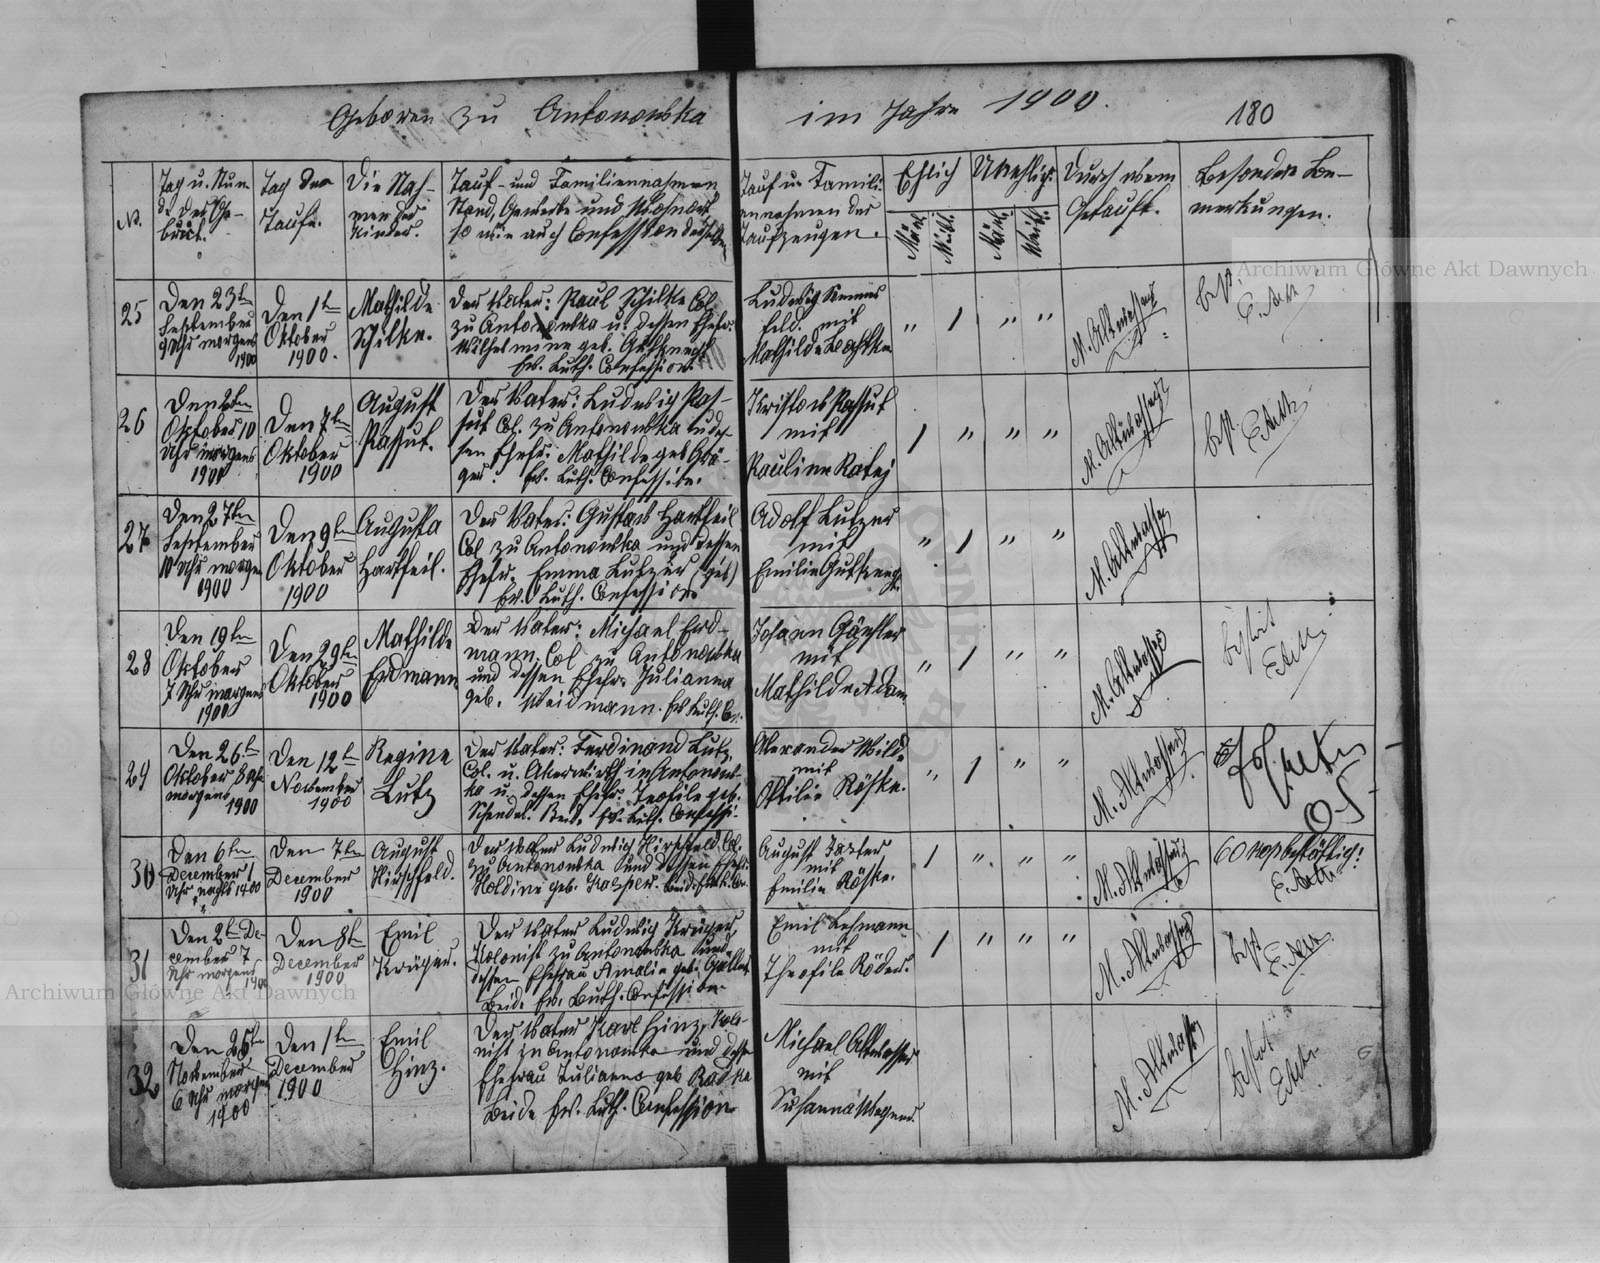 Geboren zu Antonowka im Jahre 1900. 180
No.
Tag u. Stun-
de der Ge-
burt.
Tag der
Taufe.
Die Nah-
men der
Kinder.
Tauf- und Familiennahmen,
Stand, Gewerbe und Wohnort
so wie auch Confession der
Tauf u. Famili-
ennahmen der
Taufzeugen.
Ehlich
Unehlich
Männl. Weibl. Männl. Weibl.
Durch wem
Getauft.
Besondere Be-
merkungen.
25
Den 23ten
September
9 Uhr morgens
1900
Den 1ten
Oktober
1900.
Mathilde
Schilke.
Der Vater: Paul Schilke Col.
zu Antonowka u. dessen Ehefr.
Wilhelmine geb. Gutknecht
Ev. Luth. Confession.
Ludwig
feld. mit
Mathilde
" 1 " "
M. Altwasser
best.
26
Den
Oktober 10
Uhr morgens
1900
Den 7ten
Oktober
1900
August
Rassut.
Der Vater: Ludwig Ras-
sut Col. zu Antonowka u. des-
sen Ehefr. Mathilde geb. Grö-
ger. Ev. Luth. Confession.
Kristow Rassut
mit
Pauline Ratej
1 " " "
M. Altwasser
best.
27
Den 27ten
September
10 Uhr morgen
1900
Den 9ten
Oktober
1900
Augusta
Hartfeil.
Der Vater: Gustav Hartfeil
Col zu Antonowka und dessen
Ehefr. Emma Lutzer (geb)
Ev. Luth. Confession
Adolf Lutzer
mit
Emilie
" 1 " "
M. Altwasser
28
Den 19ten
Oktober
7 Uhr morgens
1900
Den 29ten
Oktober
1900
Mathilde
Erdmann
Der Vater: Michael Erd-
mann, Col zu Antonowka
und dessen Ehefr. Julianna
geb. Weidmann. Ev Luth. Con.
Johann Gänsler
mit
Mathilde Adam
" 1 " "
M. Altwasser
29
Den 26ten
Oktober 8 Uhr
morgens
1900
Den 12ten
November
1900
Regine
Lutz
Der Vater: Ferdinand Lutz,
Col. u. Akerwirth in Antonow-
ka u. dessen Ehefr. Teofile geb.
Schendel. Beid. Ev. Luth. Confessi-
Alexander Wilde
mit
Ottilie Röske.
" 1 " "
M. Altwasser
30
Den 6ten
December 1
Uhr nachts 1900
Den 7ten
December
1900
August
Hirschfeld.
Der Vater Ludwig Hirschfeld Col.
zu Antonowka und dessen Ehefr.
Noldine geb. Kasper.
August
mit
Emilie Röske.
1 " " "
M. Altwasser
60 kop
31
Den 2ten De-
cember 7
Uhr morgens
1900
Den 8ten
December
1900
Emil
Krüger.
Der Vater Ludwig Krüger,
Kolonist zu Antonowka und
dessen Ehefrau Amalia geb.
Beide Ev. Luth. Confession
Emil Lehmann
mit
Theofile Röder.
1 " " "
M. Altwasser
best
32
Den 25ten
November
6 Uhr morgen
1900
Den 1ten
December
1900
Emil
Hinz.
Der Vater Karl Hinz, Kolo-
nist zu Antonowka und dessen
Ehefrau Julianna geb Radke
Beide Ev. Luth. Confession
Michael Altwasser
mit
Susanna Wegner.
M. Altwasser
Archiwum Główne Akt Dawnych
Archiwum Główne Akt Dawnych